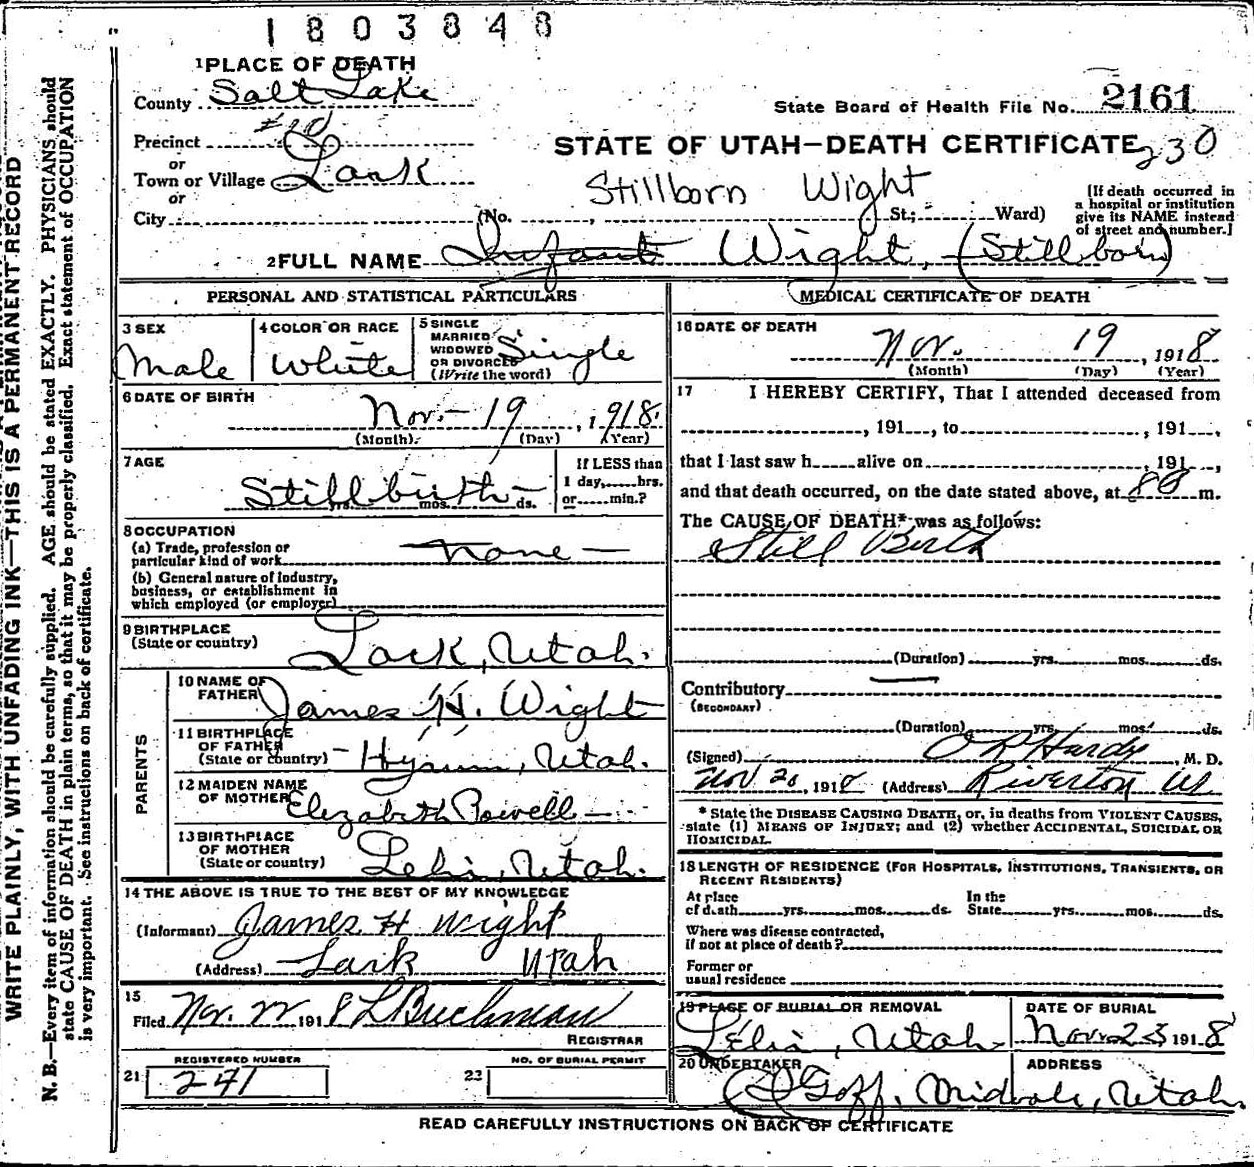 1803848
1 PLACE OF DEATH
County Salt Lake
State Board of Health File No. 2161
Precinct
STATE OF UTAH—DEATH CERTIFICATE 230
or
Town or Village Lark
Stillborn Wight
or
City (No. , St.; Ward)
[If death occurred in
a hospital or institution
give its NAME instead
of street and number.]
2 FULL NAME Infant Wight, (Stillborn)
PERSONAL AND STATISTICAL PARTICULARS
3 SEX
Male
4 COLOR OR RACE
White
5 SINGLE
MARRIED
WIDOWED
OR DIVORCED
(Write the word)
Single
6 DATE OF BIRTH
Nov. - 19, 1918.
(Month) (Day) (Year)
7 AGE
Stillbirth -
yrs. mos. ds.
If LESS than
1 day, hrs.
or min.?
8 OCCUPATION
(a) Trade, profession or
particular kind of work None —
(b) General nature of Industry,
business, or establishment in
which employed (or employer)
9 BIRTHPLACE
(State or country) Lark, Utah.
PARENTS
10 NAME OF
FATHER James H. Wight
11 BIRTHPLACE
OF FATHER
(State or country) - Hyrum, Utah.
12 MAIDEN NAME
OF MOTHER Elizabeth Powell —
13 BIRTHPLACE
OF MOTHER
(State or country) Lehi, Utah.
14 THE ABOVE IS TRUE TO THE BEST OF MY KNOWLEDGE
(Informant) James H Wight
(Address) Lark Utah
15
Filed Nov. 22 1918
REGISTRAR
REGISTERED NUMBER
21 241
NO. OF BURIAL PERMIT
23
MEDICAL CERTIFICATE OF DEATH
16 DATE OF DEATH
Nov. 19, 1918
(Month) (Day) (Year)
17 I HEREBY CERTIFY, That I attended deceased from
, 191 , to , 191 ,
that I last saw h alive on , 191 ,
and that death occurred, on the date stated above, at m.
The CAUSE OF DEATH* was as follows:
Still Birth
(Duration) yrs. mos. ds.
Contributory
(SECONDARY)
(Duration) yrs. mos. ds.
(Signed) Hardy, M. D.
Nov 20, 1918 (Address) Riverton Ut
* State the DISEASE CAUSING DEATH, or, in deaths from VIOLENT CAUSES,
state (1) MEANS OF INJURY; and (2) whether ACCIDENTAL, SUICIDAL OR
HOMICIDAL.
18 LENGTH OF RESIDENCE (FOR HOSPITALS, INSTITUTIONS, TRANSIENTS, OR
RECENT RESIDENTS)
At place In the
of death yrs. mos. ds. State yrs. mos. ds.
Where was disease contracted,
if not at place of death?
Former or
usual residence
19 PLACE OF BURIAL OR REMOVAL
Lehi, Utah
DATE OF BURIAL
Nov. 23 1918
20 UNDERTAKER ADDRESS
Goff, Midvale, Utah.
READ CAREFULLY INSTRUCTIONS ON BACK OF CERTIFICATE
WRITE PLAINLY, WITH UNFADING INK—THIS IS A PERMANENT RECORD
N. B.—Every item of information should be carefully supplied. AGE should be stated EXACTLY. PHYSICIANS should
state CAUSE OF DEATH in plain terms, so that it may be properly classified. Exact statement of OCCUPATION
is very important. See instructions on back of certificate.